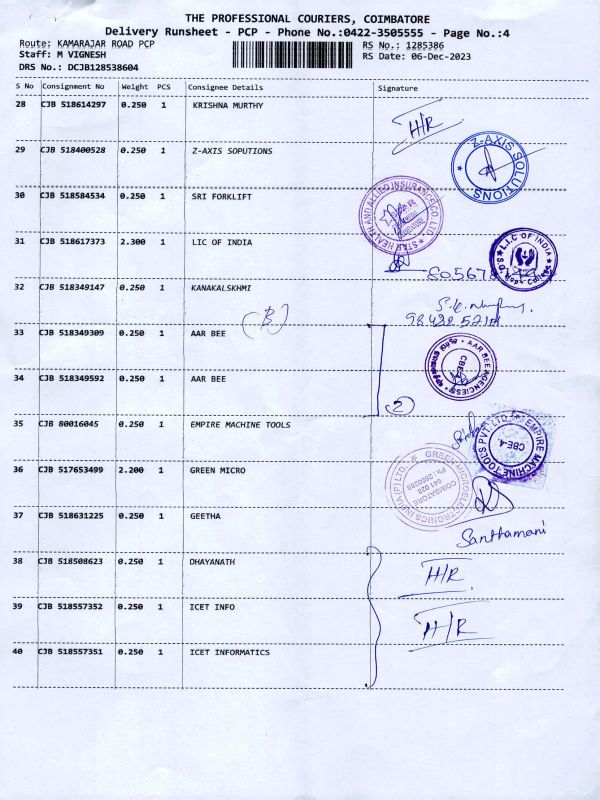 THE PROFESSIONAL COURIERS, COIMBATORE
Delivery Runsheet - PCP - Phone No.:0422-3505555 - Page No.:4
Route: KAMARAJAR ROAD PCP RS No.: 1285386
Staff: M VIGNESH RS Date: 06-Dec-2023
DRS No.: DCJB128538604
S No Consignment No Weight PCS Consignee Details Signature
28 CJB 518614297 0.250 1 KRISHNA MURTHY H/R
29 CJB 518400528 0.250 1 Z-AXIS SOPUTIONS
Z-AXIS SOLUTIONS
30 CJB 518584534 0.250 1 SRI FORKLIFT
STAR HEALTH AND ALLIED INSURANCE CO. LTD.
31 CJB 518617373 2.300 1 LIC OF INDIA
L.I.C OF INDIA
32 CJB 518349147 0.250 1 KANAKALSKHMI
(B)
33 CJB 518349309 0.250 1 AAR BEE
AAR BEE AGENCIES
34 CJB 518349592 0.250 1 AAR BEE
2
35 CJB 80016045 0.250 1 EMPIRE MACHINE TOOLS
EMPIRE MACHINE TOOLS PVT. LTD.
CBE-4.
36 CJB 517653499 2.200 1 GREEN MICRO
GREEN MICROELECTRONICS INDIA (P) LTD.
COIMBATORE
641 028
37 CJB 518631225 0.250 1 GEETHA
Santhamani
38 CJB 518508623 0.250 1 DHAYANATH H/R
39 CJB 518557352 0.250 1 ICET INFO H/R
40 CJB 518557351 0.250 1 ICET INFORMATICS